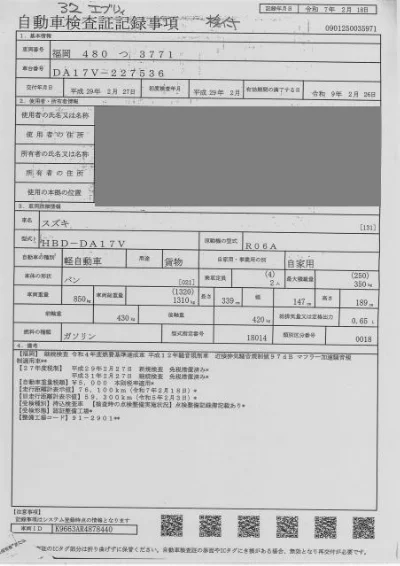 32 エブリィ 検付
記録年月日 令和 7年 2月 18日
自動車検査証記録事項
0901250035971
1. 基本情報
車両番号 福岡 480 つ 3771
車台番号 DA17V-227536
交付年月日 平成 29年 2月 27日 初度検査年月 平成 29年 2月 有効期間の満了する日 令和 9年 2月 26日
2. 使用者・所有者情報
使用者の氏名又は名称
使用者の住所
所有者の氏名又は名称
所有者の住所
使用の本拠の位置
3. 車両詳細情報
車名 スズキ [131]
型式 HBD-DA17V 原動機の型式 R06A
自動車の種別 軽自動車 用途 貨物 自家用・事業用の別 自家用
車体の形状 バン [021] 乗車定員 (4) 2人 最大積載量 (250) 350kg
車両重量 850kg 車両総重量 (1320) 1310kg 長さ 339cm 幅 147cm 高さ 189cm
前軸重 430kg 後軸重 420kg 総排気量又は定格出力 0.65L
燃料の種類 ガソリン 型式指定番号 18014 類別区分番号 0018
4. 備考
[福岡] 継続検査 令和4年度燃費基準達成車 平成12年騒音規制車 近接排気騒音規制値97dB マフラー加速騒音規制適用車**
[27年度税制] 平成29年2月27日 新規検査 免税措置済み*
平成31年2月27日 継続検査 免税措置済み*
[自動車重量税額] ¥5,000 本則税率適用*
[走行距離計表示値] 76,100km (令和7年2月18日)*
[旧走行距離計表示値] 59,300km (令和5年2月3日)*
[受検種別] 持込検査車 [受検時の点検整備実施状況] 点検整備記録簿記載あり*
[受検形態] 認証整備工場*
[整備工場コード] 91-2901**
[注意事項]
記録事項はシステム登録時点の情報となります
車両ID K9663AR4878440
のICタグ部分は折り曲げずに保管ください。自動車検査証の券面やICタグにき損がある場合、無効となり再交付が必要です。